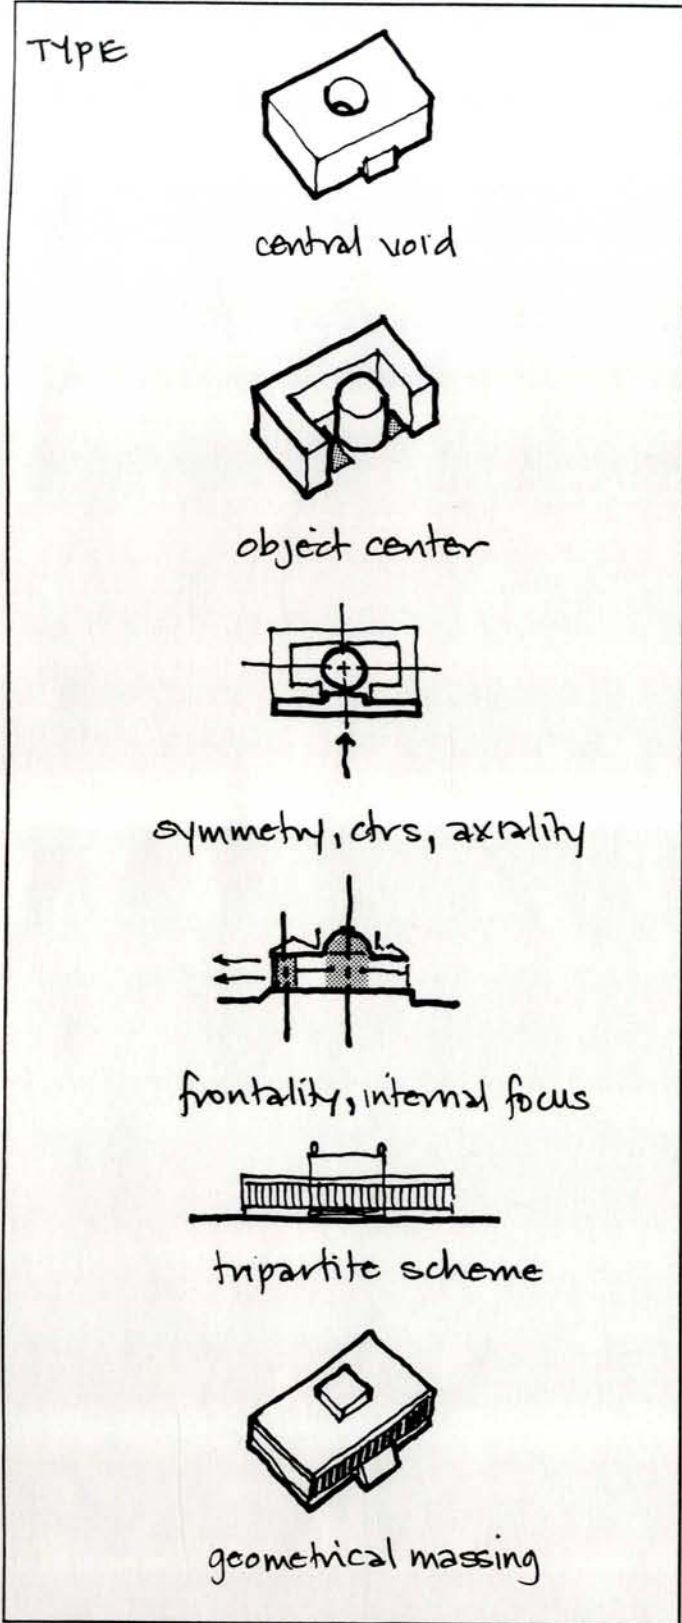 TYPE
central void
object center
symmetry, ctrs, axiality
frontality, internal focus
tripartite scheme
geometrical massing